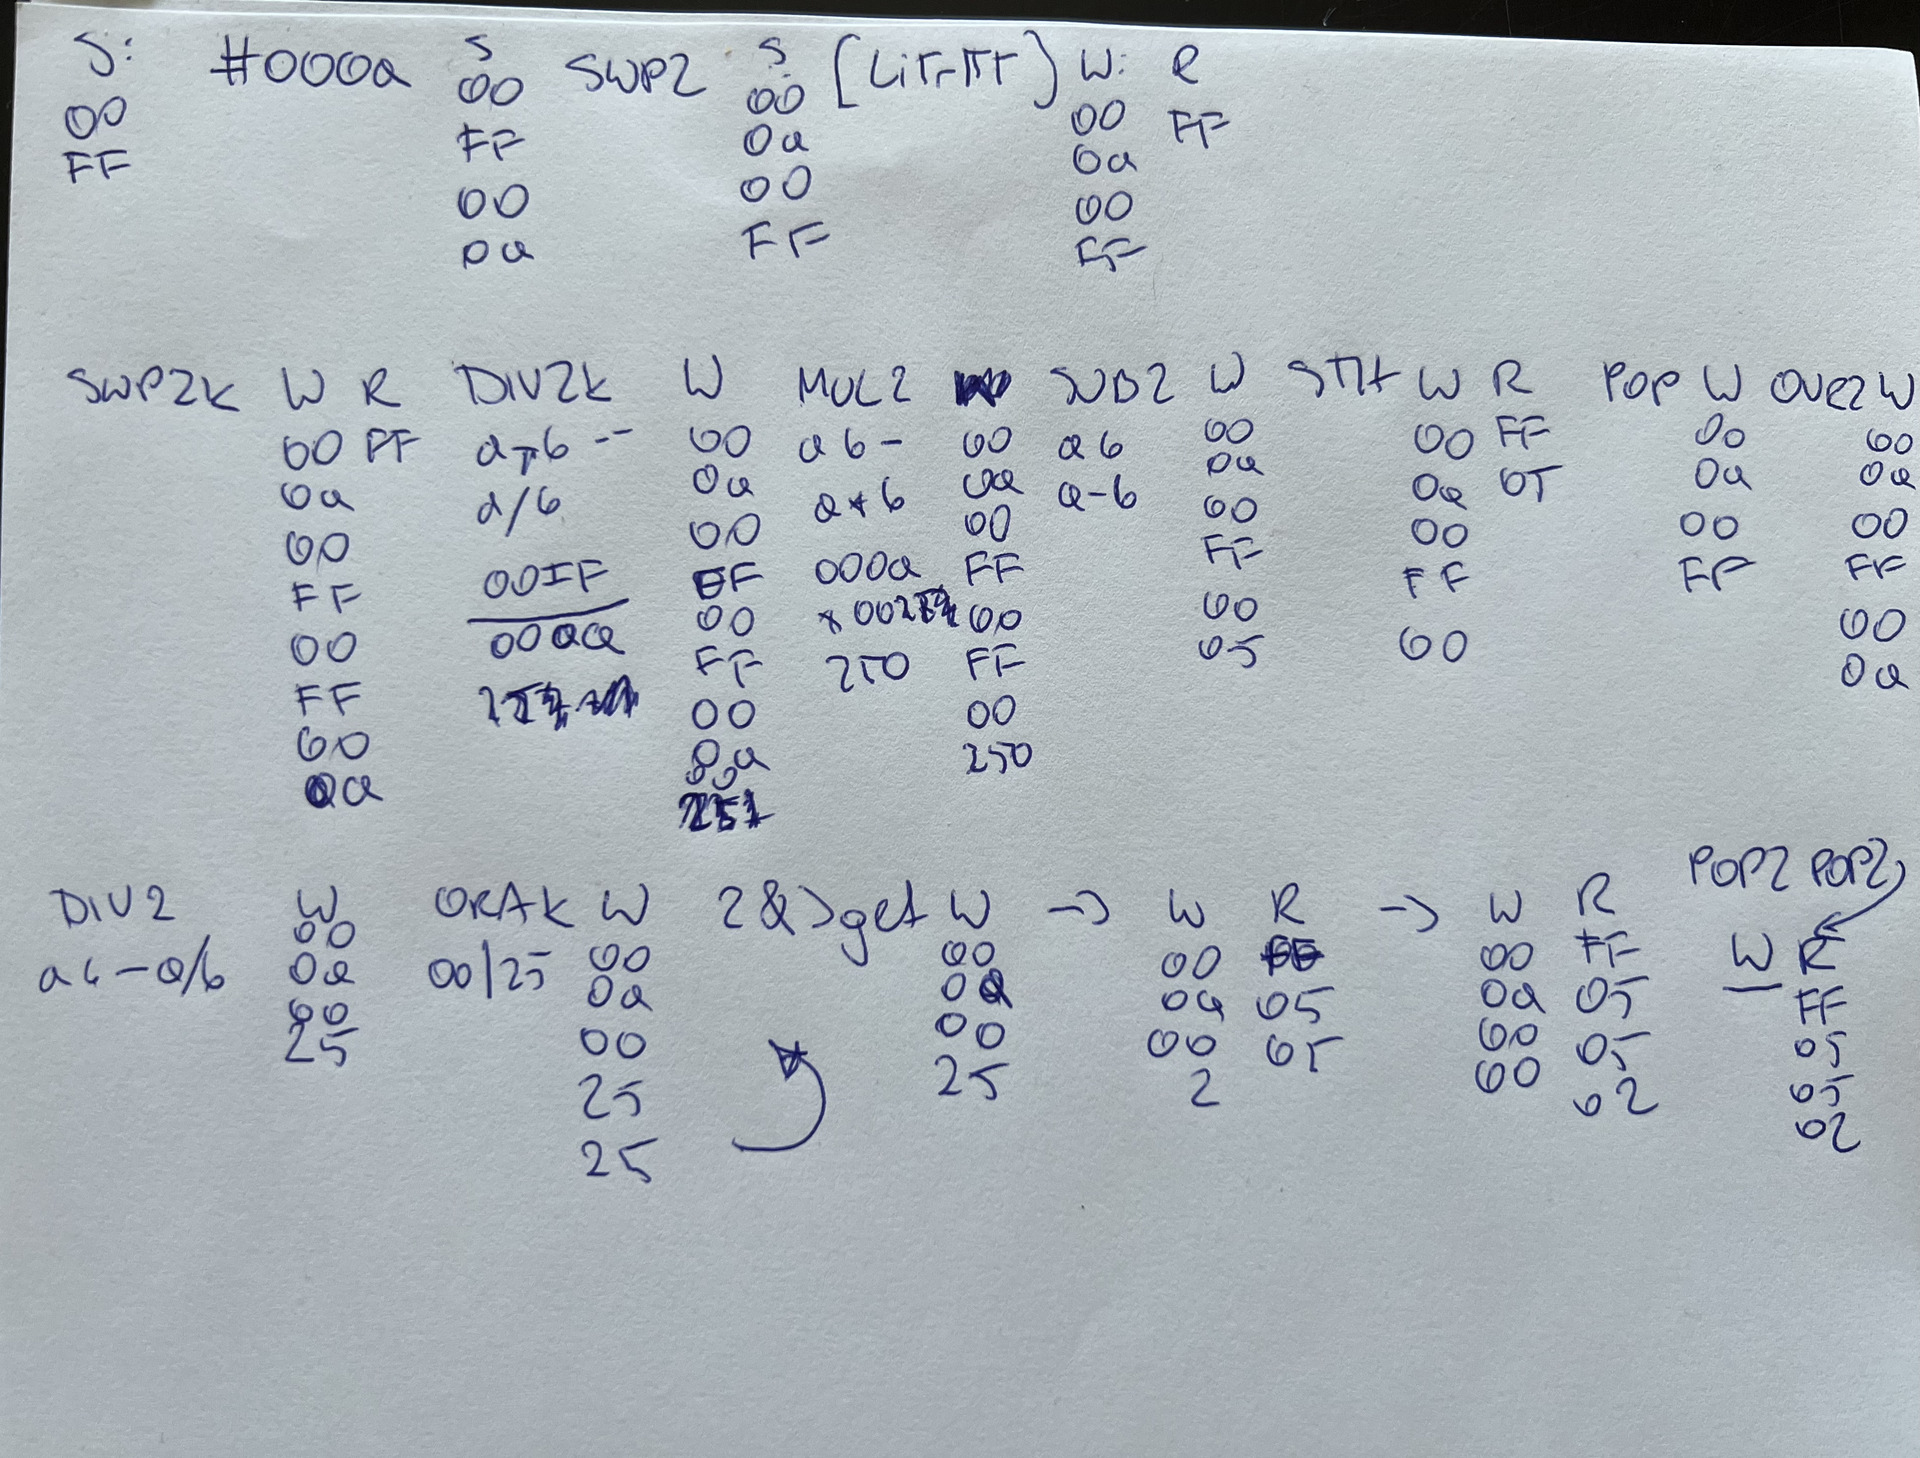 S: #000a S SWP2 S: [LiTr FF] W: R
00 00 00 00 FF
FF FF 0a 0a
00 00 00
0a FF FF
SWP2k W R DIV2k W MUL2 SUB2 W STH W R POP W OVR2 W
00 FF a b -- 00 a b - 00 a b 00 00 FF 00 00
0a a/b 0a a*b 0a a-b 0a 0a 05 0a 0a
00 00 00 00 00 00 00
FF 00FF FF 000a FF FF FF FF FF
00 000a 00 00 00 00 00
FF FF 250 FF 05 0a
00 00 00
0a 0a 250
00
DIV2 W ORAk W 2 &>get W -> W R -> W R POP2 POP2
00 W R
a b - a/b 0a 00/25 00 00 00 00 FF FF
00 0a 0a 0a 05 0a 05 05
25 00 00 00 05 00 05 05
25 25 2 00 02 02
25